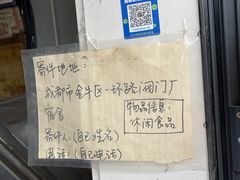 寄件地址:
成都市金牛区一环路阀门厂
宿舍
物品信息:
休闲食品
寄件人:(自己姓名)
电话:(自己电话)